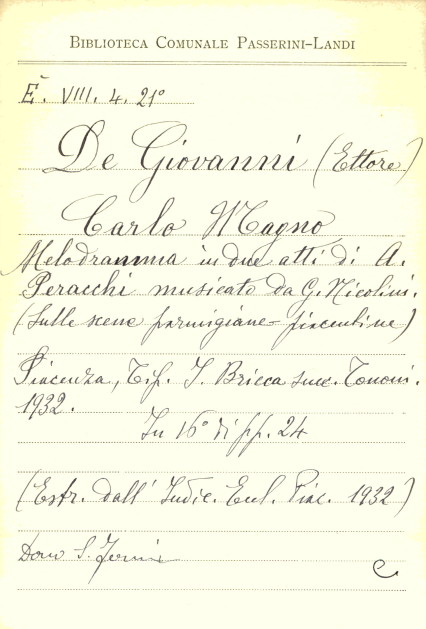 BIBLIOTECA COMUNALE PASSERINI-LANDI
E. VIII. 4. 21º
De Giovanni (Ettore)
Carlo Magno
Melodramma in due atti di A.
Peracchi musicato da G. Nicolini.
(Sulle scene parmigiane - piacentine)
Piacenza, Tip. I. Bricca succ. Tononi.
1932.
In 16º di pp. 24
(Estr. dall' Indic. Eccl. Piac. 1932)
Dono S.
C